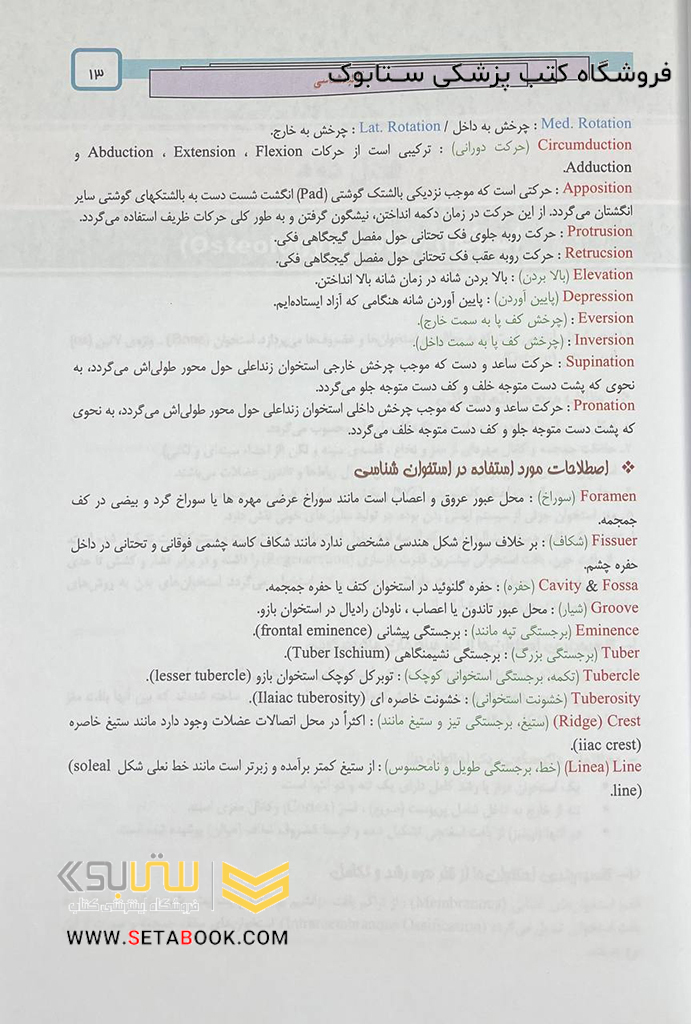 فروشگاه کتب پزشکی ستابوک
۱۳
Med. Rotation : چرخش به داخل / Lat. Rotation : چرخش به خارج.
Circumduction (حرکت دورانی) : ترکیبی است از حرکات Abduction ، Extension ، Flexion و
Adduction.
Apposition : حرکتی است که موجب نزدیکی بالشتک گوشتی (Pad) انگشت شست دست به بالشتکهای گوشتی سایر
انگشتان می‌گردد. از این حرکت در زمان دکمه انداختن، نیشگون گرفتن و به طور کلی حرکات ظریف استفاده می‌گردد.
Protrusion : حرکت روبه جلوی فک تحتانی حول مفصل گیجگاهی فکی.
Retrucsion : حرکت روبه عقب فک تحتانی حول مفصل گیجگاهی فکی.
Elevation (بالا بردن) : بالا بردن شانه در زمان شانه بالا انداختن.
Depression (پایین آوردن) : پایین آوردن شانه هنگامی که آزاد ایستاده‌ایم.
Eversion : (چرخش کف پا به سمت خارج).
Inversion : (چرخش کف پا به سمت داخل).
Supination : حرکت ساعد و دست که موجب چرخش خارجی استخوان زنداعلی حول محور طولی‌اش می‌گردد، به
نحوی که پشت دست متوجه خلف و کف دست متوجه جلو می‌گردد.
Pronation : حرکت ساعد و دست که موجب چرخش داخلی استخوان زنداعلی حول محور طولی‌اش می‌گردد، به نحوی
که پشت دست متوجه جلو و کف دست متوجه خلف می‌گردد.
❖ اصطلاحات مورد استفاده در استخوان شناسی
Foramen (سوراخ) : محل عبور عروق و اعصاب است مانند سوراخ عرضی مهره ها یا سوراخ گرد و بیضی در کف
جمجمه.
Fissuer (شکاف) : بر خلاف سوراخ شکل هندسی مشخصی ندارد مانند شکاف کاسه چشمی فوقانی و تحتانی در داخل
حفره چشم.
Cavity & Fossa (حفره) : حفره گلنوئید در استخوان کتف یا حفره جمجمه.
Groove (شیار) : محل عبور تاندون یا اعصاب ، ناودان رادیال در استخوان بازو.
Eminence (برجستگی تپه مانند) : برجستگی پیشانی (frontal eminence).
Tuber (برجستگی بزرگ) : برجستگی نشیمنگاهی (Tuber Ischium).
Tubercle (تکمه، برجستگی استخوانی کوچک) : توبرکل کوچک استخوان بازو (lesser tubercle).
Tuberosity (خشونت استخوانی) : خشونت خاصره ای (Ilaiac tuberosity).
(Ridge) Crest (ستیغ، برجستگی تیز و ستیغ مانند) : اکثراً در محل اتصالات عضلات وجود دارد مانند ستیغ خاصره
(iiac crest).
(Linea) Line (خط، برجستگی طویل و نامحسوس) : از ستیغ کمتر برآمده و زبرتر است مانند خط نعلی شکل (soleal
line).
ستابوک
فروشگاه اینترنتی کتاب
WWW.SETABOOK.COM